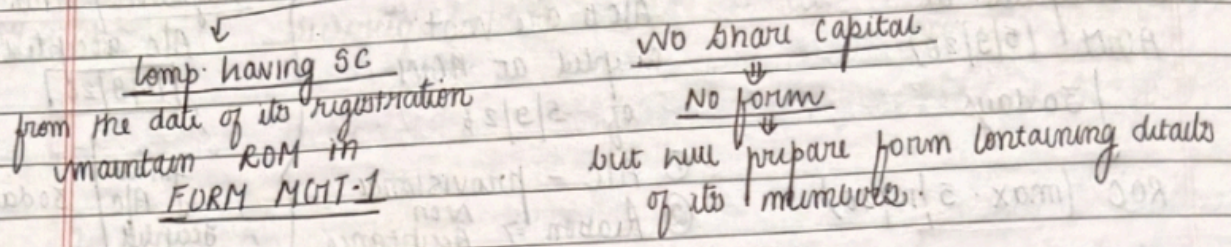 Comp. having SC
from the date of its registration
maintain ROM in
FORM MGT-1
No share capital
⇓
No form
⇓
but will prepare form containing details
of its members.